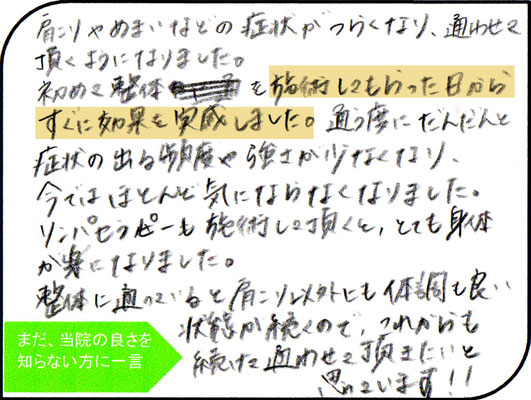 肩こりやめまいなどの症状がつらくなり、通わせて
頂くようになりました。
初めて整体を施術してもらった日から
すぐに効果を実感しました。通う度にだんだんと
症状の出る頻度や強さが少なくなり、
今ではほとんど気にならなくなりました。
リンパセラピーも施術して頂くと、とても身体
が楽になりました。
整体に通っていると肩こり以外にも体調も良い
状態が続くので、これからも
続けて通わせて頂きたいと
思っています!!
まだ、当院の良さを
知らない方に一言